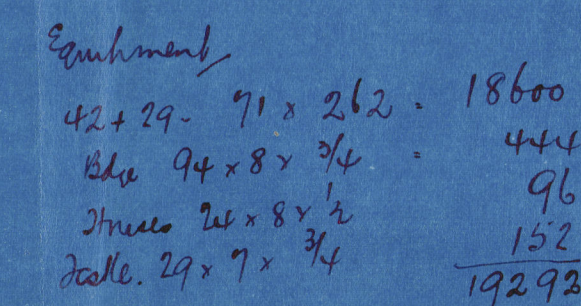 Equipment
42 + 29 - 71 x 262 = 18600
Bdge 94 x 8 x 3/4 = 444
24 x 8 x 1/2 96
29 x 7 x 3/4 152
19292